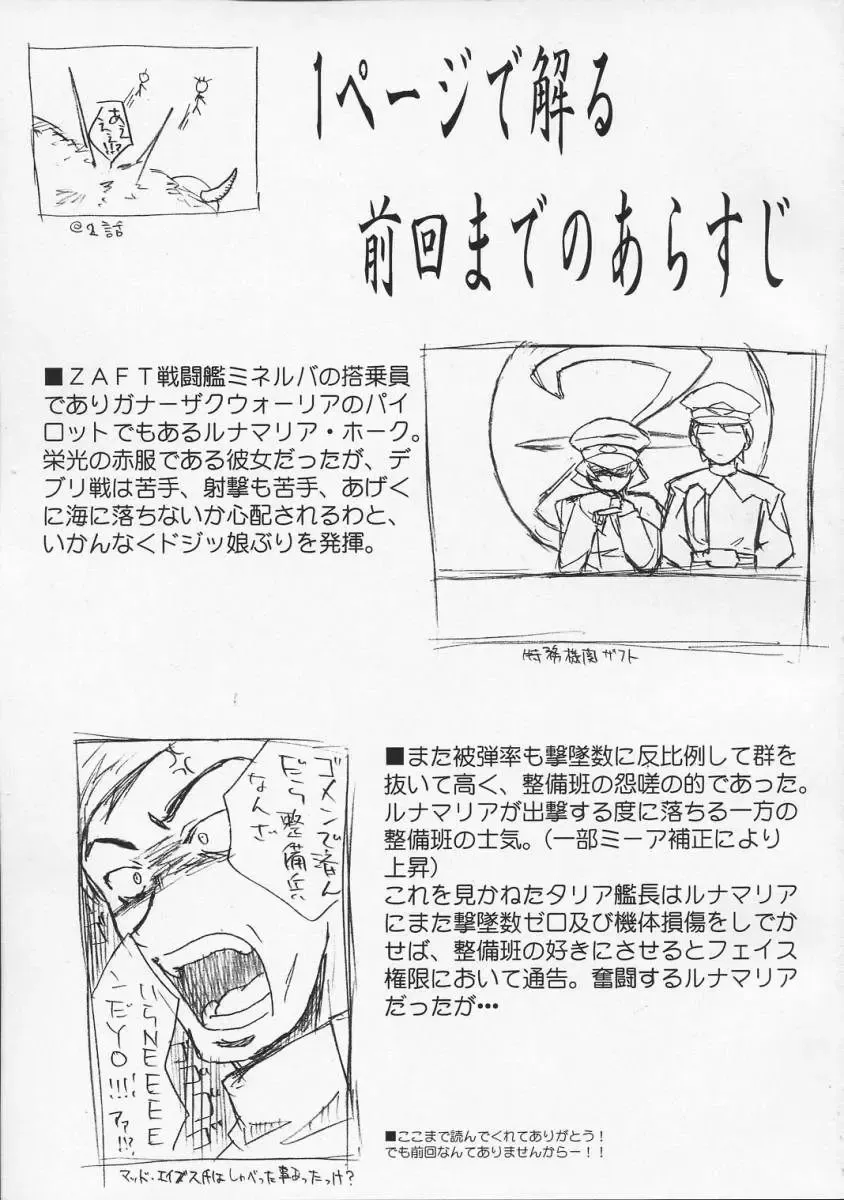 1ページで解る
前回までのあらすじ
あぇぇ!!?
@1話
■ZAFT戦闘艦ミネルバの搭乗員
でありガナーザクウォーリアのパイ
ロットでもあるルナマリア・ホーク。
栄光の赤服である彼女だったが、デ
ブリ戦は苦手、射撃も苦手、あげく
に海に落ちないか心配されるわと、
いかんなくドジッ娘ぶりを発揮。
特務機関ザフト
ゴメンで済ん
だら整備兵
なんざ
いらNEEEE
ンだYO!!!
アァ!?
マッド・エイブス氏はしゃべった事あったっけ?
■また被弾率も撃墜数に反比例して群を
抜いて高く、整備班の怨嗟の的であった。
ルナマリアが出撃する度に落ちる一方の
整備班の士気。(一部ミーア補正により
上昇)
これを見かねたタリア艦長はルナマリア
にまた撃墜数ゼロ及び機体損傷をしでか
せば、整備班の好きにさせるとフェイス
権限において通告。奮闘するルナマリア
だったが・・・
■ここまで読んでくれてありがとう!
でも前回なんてありませんからー!!